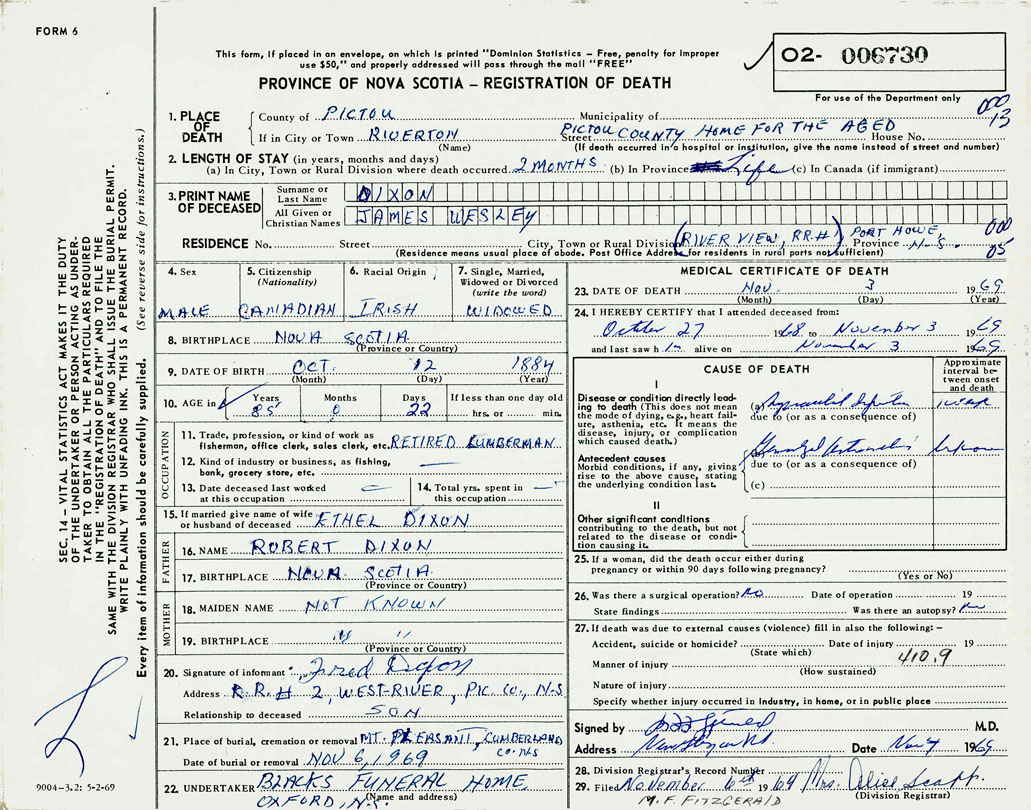 FORM 6
This form, if placed in an envelope, on which is printed "Dominion Statistics – Free, penalty for improper
use $50," and properly addressed will pass through the mail "FREE"
PROVINCE OF NOVA SCOTIA – REGISTRATION OF DEATH
O2- 006730
For use of the Department only
000
13
1. PLACE OF DEATH
County of PICTOU Municipality of
If in City or Town RIVERTON Street PICTOU COUNTY HOME FOR THE AGED House No.
(Name) (If death occurred in a hospital or institution, give the name instead of street and number)
2. LENGTH OF STAY (in years, months and days)
(a) In City, Town or Rural Division where death occurred 2 MONTHS (b) In Province Life (c) In Canada (if immigrant)
3. PRINT NAME OF DECEASED
Surname or Last Name DIXON
All Given or Christian Names JAMES WESLEY
RESIDENCE No. Street City, Town or Rural Division (RIVER VIEW, RR#1) PORT HOWE, Province N-S.
000
05
(Residence means usual place of abode. Post Office Address for residents in rural parts not sufficient)
4. Sex MALE
5. Citizenship (Nationality) CANADIAN
6. Racial Origin IRISH
7. Single, Married, Widowed or Divorced (write the word) WIDOWED
8. BIRTHPLACE NOVA SCOTIA
(Province or Country)
9. DATE OF BIRTH OCT. 12 1884
(Month) (Day) (Year)
10. AGE in Years Months Days If less than one day old
85 0 22 hrs. or min.
OCCUPATION
11. Trade, profession, or kind of work as
fisherman, office clerk, sales clerk, etc. RETIRED LUMBERMAN
12. Kind of industry or business, as fishing,
bank, grocery store, etc. —
13. Date deceased last worked
at this occupation —
14. Total yrs. spent in
this occupation —
15. If married give name of wife
or husband of deceased ETHEL DIXON
FATHER
16. NAME ROBERT DIXON
17. BIRTHPLACE NOVA SCOTIA
(Province or Country)
MOTHER
18. MAIDEN NAME NOT KNOWN
19. BIRTHPLACE " "
(Province or Country)
20. Signature of informant Fred Dixon
Address R.R.# 2, WEST-RIVER, PIC. CO., N-S
Relationship to deceased SON
21. Place of burial, cremation or removal MT. PLEASANT, CUMBERLAND
CO. N-S
Date of burial or removal NOV 6, 1969
22. UNDERTAKER BLACKS FUNERAL HOME
OXFORD, N.S.
(Name and address)
MEDICAL CERTIFICATE OF DEATH
23. DATE OF DEATH Nov. 3 1969
(Month) (Day) (Year)
24. I HEREBY CERTIFY that I attended deceased from:
October 27 1968 to November 3 1969
and last saw him alive on November 3 1969
CAUSE OF DEATH
Approximate interval between onset and death
I
Disease or condition directly leading to death (This does not mean the mode of dying, e.g., heart failure, asthenia, etc. It means the disease, injury, or complication which caused death.)
(a) Myocardial Infarction 1 week
due to (or as a consequence of)
Antecedent causes
Morbid conditions, if any, giving rise to the above cause, stating the underlying condition last.
(b) Generalized
due to (or as a consequence of)
(c)
II
Other significant conditions
contributing to the death, but not related to the disease or condition causing it.
25. If a woman, did the death occur either during
pregnancy or within 90 days following pregnancy?
(Yes or No)
26. Was there a surgical operation? No Date of operation 19
State findings Was there an autopsy? No
27. If death was due to external causes (violence) fill in also the following: –
Accident, suicide or homicide? Date of injury 19
(State which)
410.9
Manner of injury
(How sustained)
Nature of injury
Specify whether injury occurred in Industry, in home, or in public place
Signed by M.D.
Address Date Nov 4 1969
28. Division Registrar's Record Number
29. Filed November 6th 1969 Mrs. Alice
(Division Registrar)
M. F. FITZGERALD
SEC. 14 – VITAL STATISTICS ACT MAKES IT THE DUTY
OF THE UNDERTAKER OR PERSON ACTING AS UNDERTAKER TO OBTAIN ALL THE PARTICULARS REQUIRED
IN THE "REGISTRATION OF DEATH" AND TO FILE THE
SAME WITH THE DIVISION REGISTRAR WHO SHALL ISSUE THE BURIAL PERMIT.
WRITE PLAINLY WITH UNFADING INK. THIS IS A PERMANENT RECORD.
Every item of information should be carefully supplied. (See reverse side for instructions.)
9004-3.2: 5-2-69